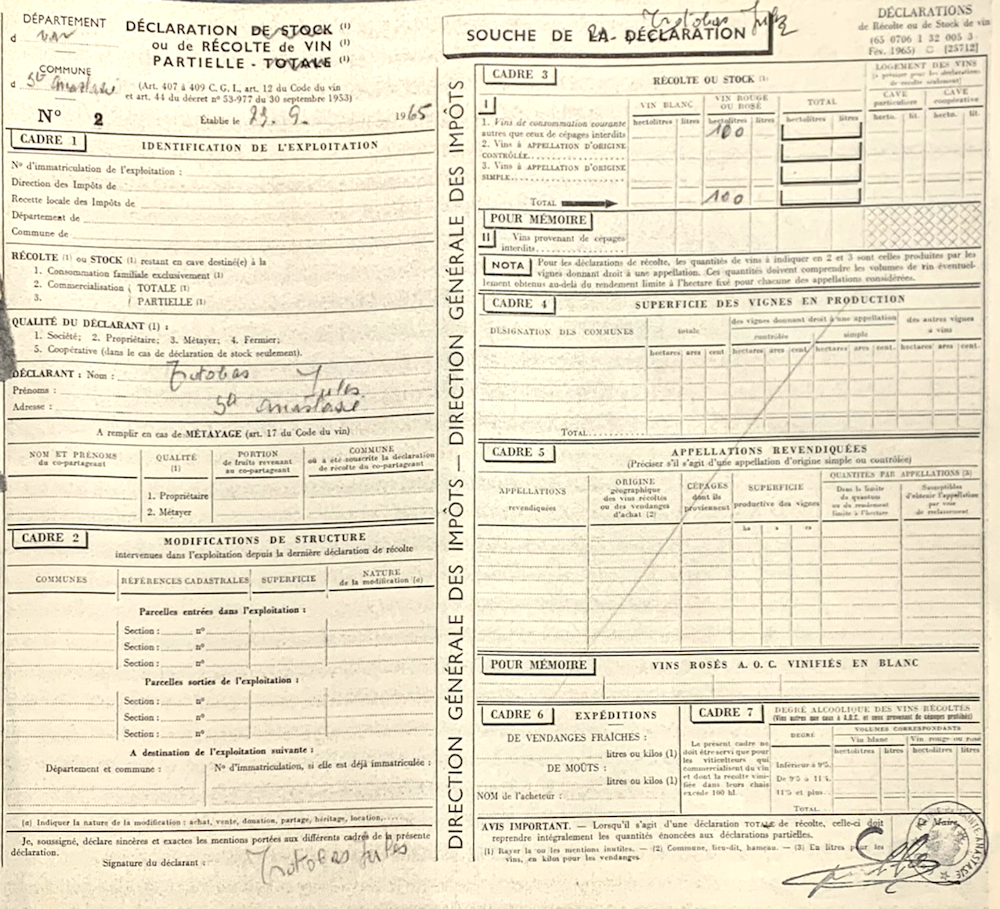 DÉPARTEMENT
d var
COMMUNE
d Ste Anastasie
DÉCLARATION DE STOCK (1)
ou de RÉCOLTE de VIN (1)
PARTIELLE - TOTALE (1)
(Art. 407 à 409 C. G. I., art. 12 du Code du vin
et art. 44 du décret n° 53-977 du 30 septembre 1953)
N° 2
Établie le 23. 9. 1965
CADRE 1
IDENTIFICATION DE L'EXPLOITATION
N° d'immatriculation de l'exploitation :
Direction des Impôts de
Recette locale des Impôts de
Département de
Commune de
RÉCOLTE (1) ou STOCK (1) restant en cave destiné(e) à la
1. Consommation familiale exclusivement (1)
2. Commercialisation { TOTALE (1)
3. { PARTIELLE (1)
QUALITÉ DU DÉCLARANT (1) :
1. Société; 2. Propriétaire; 3. Métayer; 4. Fermier;
5. Coopérative (dans le cas de déclaration de stock seulement).
DÉCLARANT : Nom : Trotobas
Prénoms : Jules
Adresse : Ste Anastasie
A remplir en cas de MÉTAYAGE (art. 17 du Code du vin)
NOM ET PRÉNOMS
du co-partageant
QUALITÉ
(1)
PORTION
de fruits revenant
au co-partageant
COMMUNE
où a été souscrite la déclaration
de récolte du co-partageant
1. Propriétaire
2. Métayer
CADRE 2
MODIFICATIONS DE STRUCTURE
intervenues dans l'exploitation depuis la dernière déclaration de récolte
COMMUNES
RÉFÉRENCES CADASTRALES
SUPERFICIE
NATURE
de la modification (a)
Parcelles entrées dans l'exploitation :
Section : n°
Section : n°
Section : n°
Parcelles sorties de l'exploitation :
Section : n°
Section : n°
Section : n°
A destination de l'exploitation suivante :
Département et commune :
N° d'immatriculation, si elle est déjà immatriculée :
(a) Indiquer la nature de la modification : achat, vente, donation, partage, héritage, location,
Je, soussigné, déclare sincères et exactes les mentions portées aux différents cadres de la présente
déclaration.
Signature du déclarant :
Trotobas Jules
DIRECTION GÉNÉRALE DES IMPÔTS — DIRECTION GÉNÉRALE DES IMPÔTS
Trotobas Jules
SOUCHE DE LA DÉCLARATION
DÉCLARATIONS
de Récolte ou de Stock de vin
(65 0706 1 32 005 3
Fév. 1965) [25712]
CADRE 3
RÉCOLTE OU STOCK (1)
LOGEMENT DES VINS
VIN BLANC
VIN ROUGE
OU ROSÉ
TOTAL
CAVE
particulière
CAVE
coopérative
hectolitres litres
hectolitres litres
hectolitres litres
hecto. lit.
hecto. lit.
I
1. Vins de consommation courante
autres que ceux de cépages interdits
100
2. Vins à APPELLATION D'ORIGINE
CONTRÔLÉE
3. Vins à APPELLATION D'ORIGINE
SIMPLE
TOTAL
100
POUR MÉMOIRE
II
Vins provenant de cépages
interdits
NOTA
Pour les déclarations de récolte, les quantités de vins à indiquer en 2 et 3 sont celles produites par les
vignes donnant droit à une appellation. Ces quantités doivent comprendre les volumes de vin éventuel-
lement obtenus au-delà du rendement limite à l'hectare fixé pour chacune des appellations considérées.
CADRE 4
SUPERFICIE DES VIGNES EN PRODUCTION
DÉSIGNATION DES COMMUNES
totale
des vignes donnant droit à une appellation
contrôlée
simple
des autres vignes
à vins
hectares ares cent.
hectares ares cent.
hectares ares cent.
hectares ares cent.
TOTAL
CADRE 5
APPELLATIONS REVENDIQUÉES
(Précisez s'il s'agit d'une appellation d'origine simple ou contrôlée)
APPELLATIONS
revendiquées
ORIGINE
géographique
des vins récoltés
ou des vendanges
d'achat (2)
CÉPAGES
dont ils
proviennent
SUPERFICIE
productive des vignes
QUANTITÉS PAR APPELLATIONS (3)
Dans la limite
du quantum
ou du rendement
limite à l'hectare
Susceptibles
d'obtenir l'appellation
par voie
de reclassement
ha a ca
POUR MÉMOIRE
VINS ROSÉS A. O. C. VINIFIÉS EN BLANC
CADRE 6
EXPÉDITIONS
DE VENDANGES FRAÎCHES :
litres ou kilos (1)
DE MOÛTS :
litres ou kilos (1)
NOM de l'acheteur :
CADRE 7
DEGRÉ ALCOOLIQUE DES VINS RÉCOLTÉS
(Vins autres que ceux à A.O.C. et ceux provenant de cépages prohibés)
Le présent cadre ne
doit être servi que pour
les viticulteurs qui
commercialisent du vin
et dont la récolte vini-
fiée dans leurs chais
excède 100 hl.
DEGRÉ
VOLUMES CORRESPONDANTS
Vin blanc
Vin rouge ou rosé
hectolitres litres
hectolitres litres
Inférieur à 9°5.
De 9°5 à 11°.
11°5 et plus.
TOTAL
AVIS IMPORTANT. — Lorsqu'il s'agit d'une déclaration TOTALE de récolte, celle-ci doit
reprendre intégralement les quantités énoncées aux déclarations partielles.
(1) Rayer la ou les mentions inutiles. — (2) Commune, lieu-dit, hameau. — (3) En litres pour les
vins, en kilos pour les vendanges.
Le Maire,